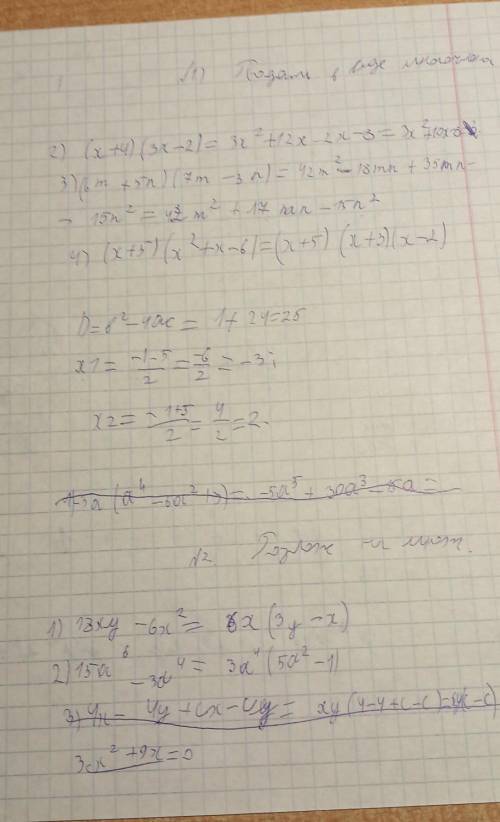 №1) Подать в виде многочлена
2) (x+4)(3x-2)= 3x²+12x-2x-8= 3x²+10x-8
3)(6m+5n)(7m-3n)= 42m²-18mn+35mn-
- 15n²= 42m²+17mn-15n²
4) (x+5)(x²+x-6)=(x+5)(x+3)(x-2)
D=b²-4ac= 1+24=25
x1= \frac{-1-5}{2} = \frac{-6}{2} = -3;
x2= \frac{-1+5}{2} = \frac{4}{2} =2.
= -5a⁵+30a³
№2. на множ.
1) 18xy-6x²= 6x(3y-x)
2)15a⁶-3a⁴= 3a⁴(5a²-1)
3) 4x-4y+cx-cy= xy(4-4+c-c)
3x²+9x=0